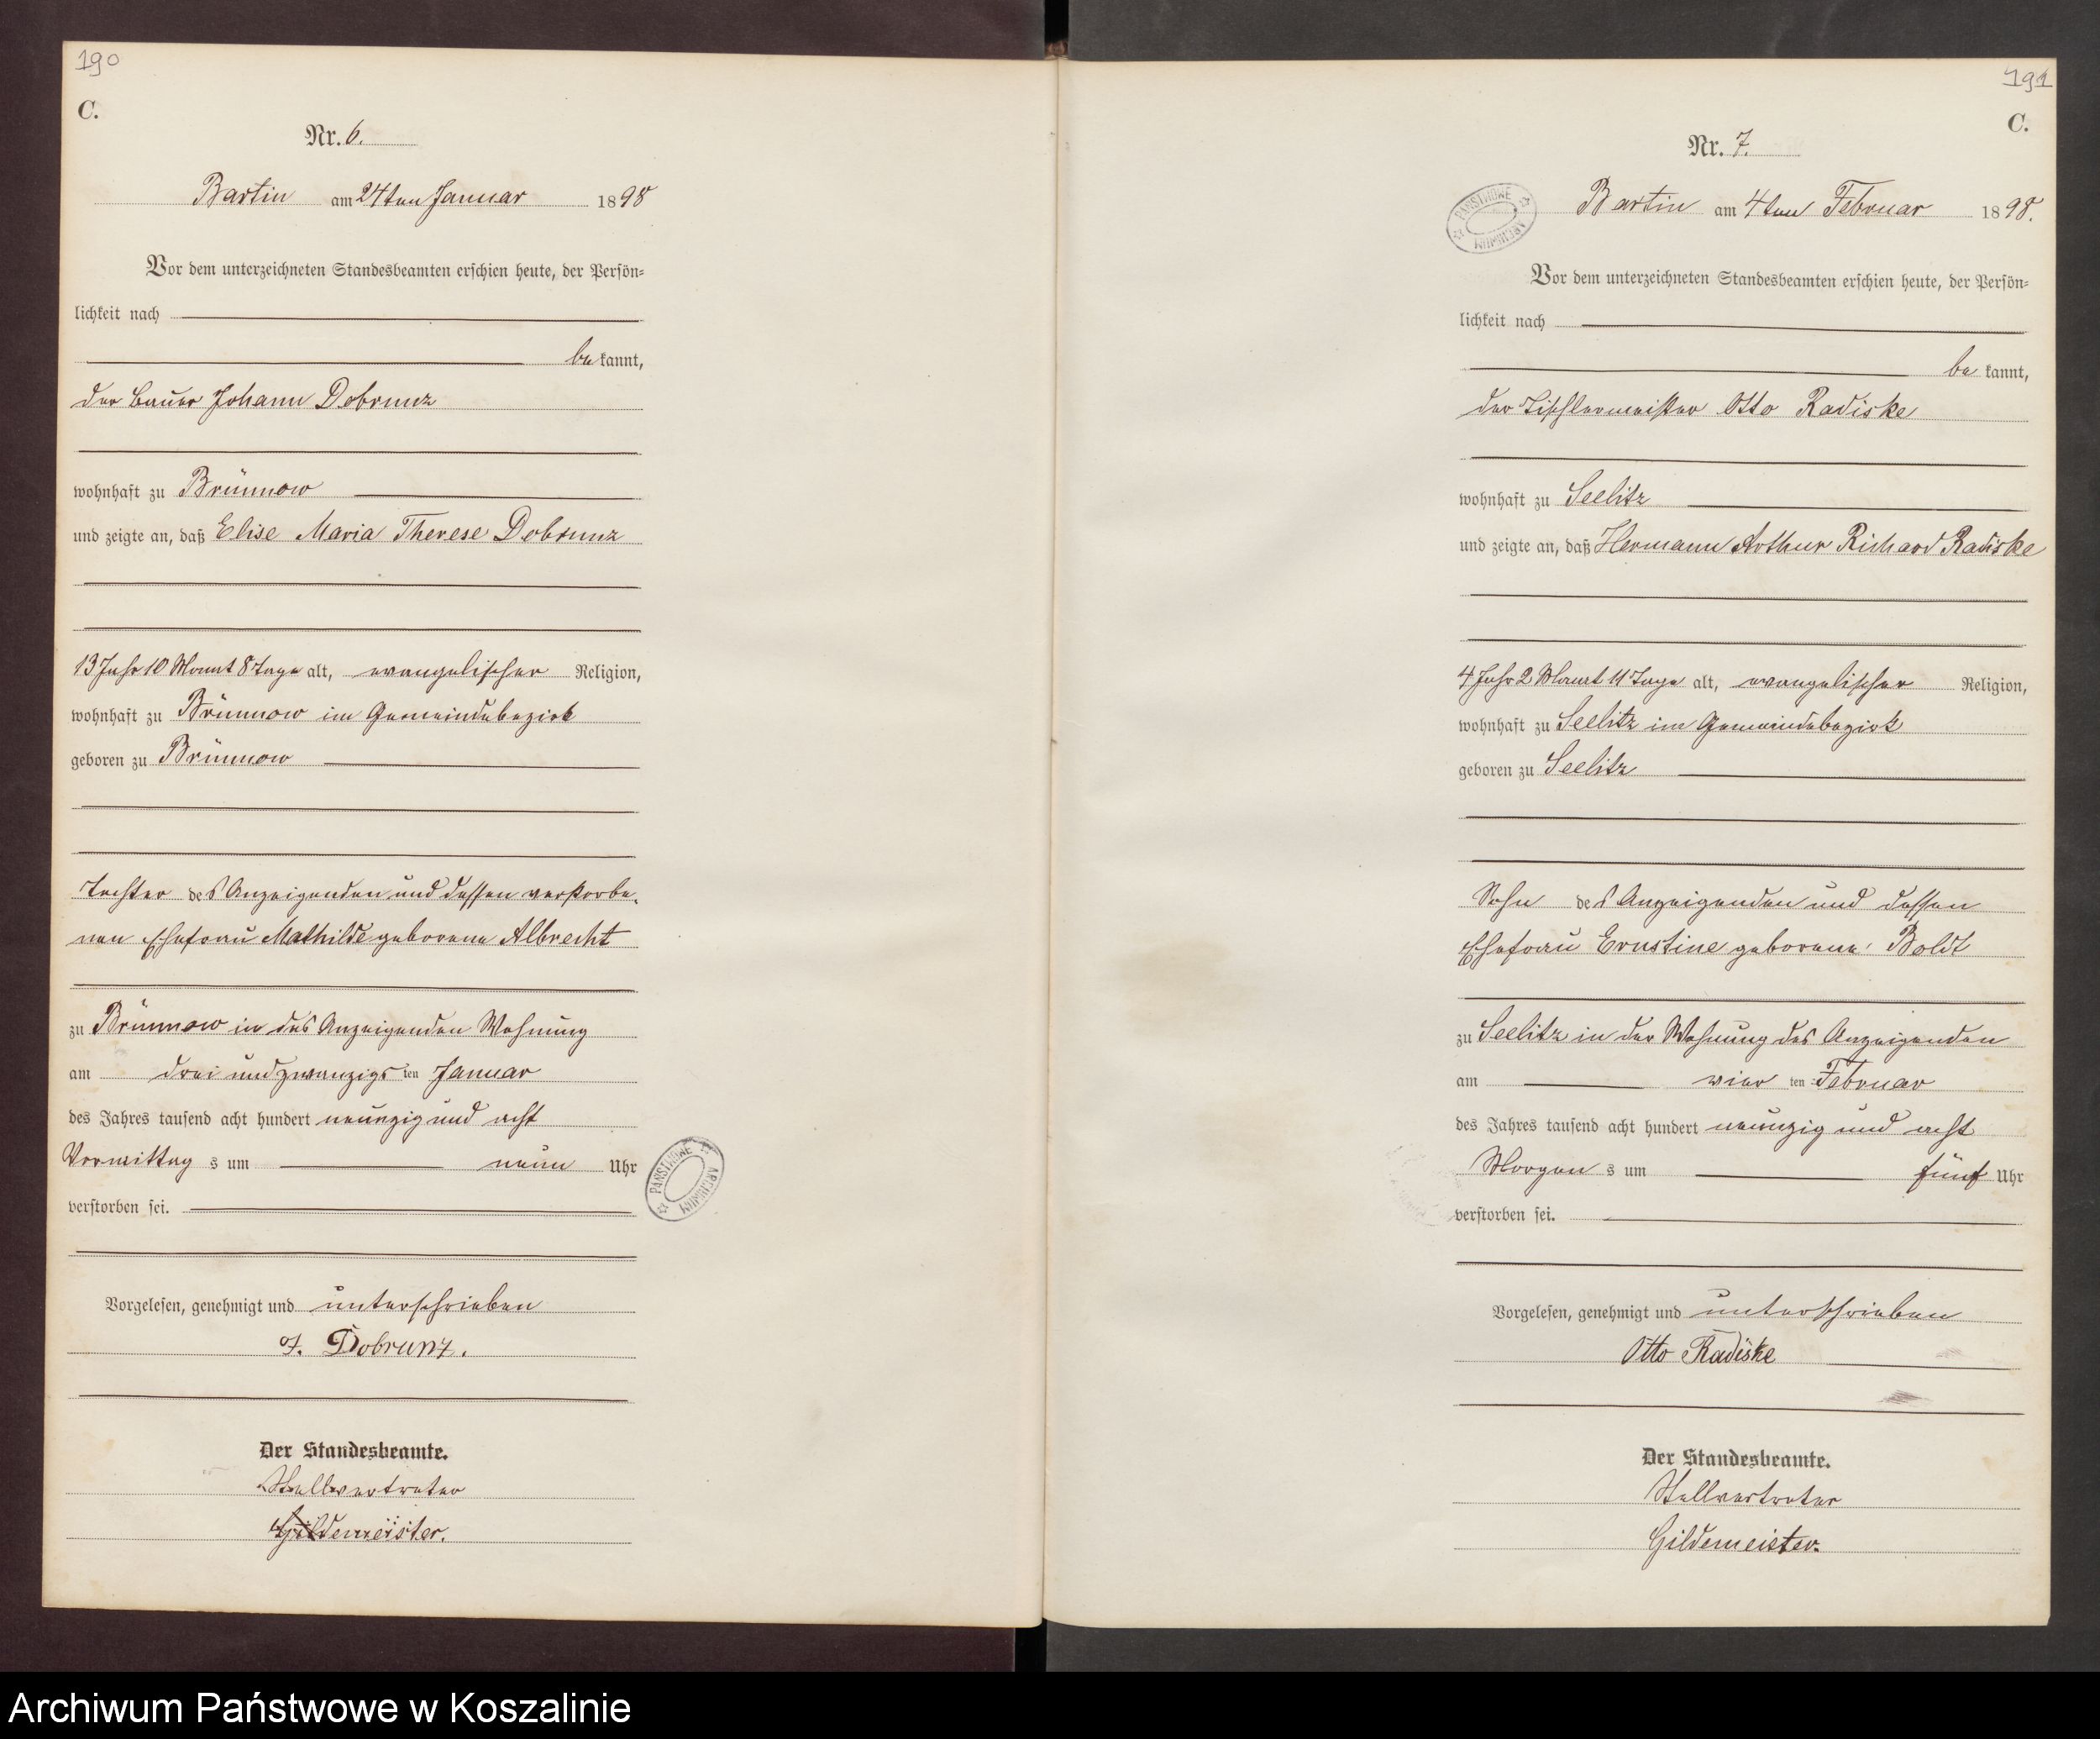 190
C.
Nr. 6.
Bartin am 24ten Januar 1898
Vor dem unterzeichneten Standesbeamten erschien heute, der Persön=
lichkeit nach
be kannt,
der Bauer Johann Dobrunz
wohnhaft zu Brünnow
und zeigte an, daß Elise Maria Therese Dobrunz
13 Jahr 10 Monat 8 Tage alt, evangelischer Religion,
wohnhaft zu Brünnow im Gemeindebezirk
geboren zu Brünnow
Tochter des Anzeigenden und dessen verstorbe-
nen Ehefrau Mathilde geborene Albrecht
zu Brünnow in des Anzeigenden Wohnung
am drei und zwanzigsten Januar
des Jahres tausend acht hundert neunzig und acht
Vormittag s um neun Uhr
verstorben sei.
Vorgelesen, genehmigt und unterschrieben
J. Dobrunz.
Der Standesbeamte.
Stellvertreter
Gildemeister.
PAŃSTWOWE ARCHIWUM
191
C.
Nr. 7.
PAŃSTWOWE ARCHIWUM
Bartin am 4ten Februar 1898.
Vor dem unterzeichneten Standesbeamten erschien heute, der Persön=
lichkeit nach
be kannt,
der Tischlermeister Otto Radiske
wohnhaft zu Seelitz
und zeigte an, daß Hermann Arthur Richard Radiske
4 Jahr 2 Monat 11 Tage alt, evangelischer Religion,
wohnhaft zu Seelitz im Gemeindebezirk
geboren zu Seelitz
Sohn des Anzeigenden und dessen
Ehefrau Ernstine geborene Boldt
zu Seelitz in der Wohnung des Anzeigenden
am vier ten Februar
des Jahres tausend acht hundert neunzig und acht
Morgen s um fünf Uhr
verstorben sei.
Vorgelesen, genehmigt und unterschrieben
Otto Radiske
Der Standesbeamte.
Stellvertreter
Gildemeister.
Archiwum Państwowe w Koszalinie